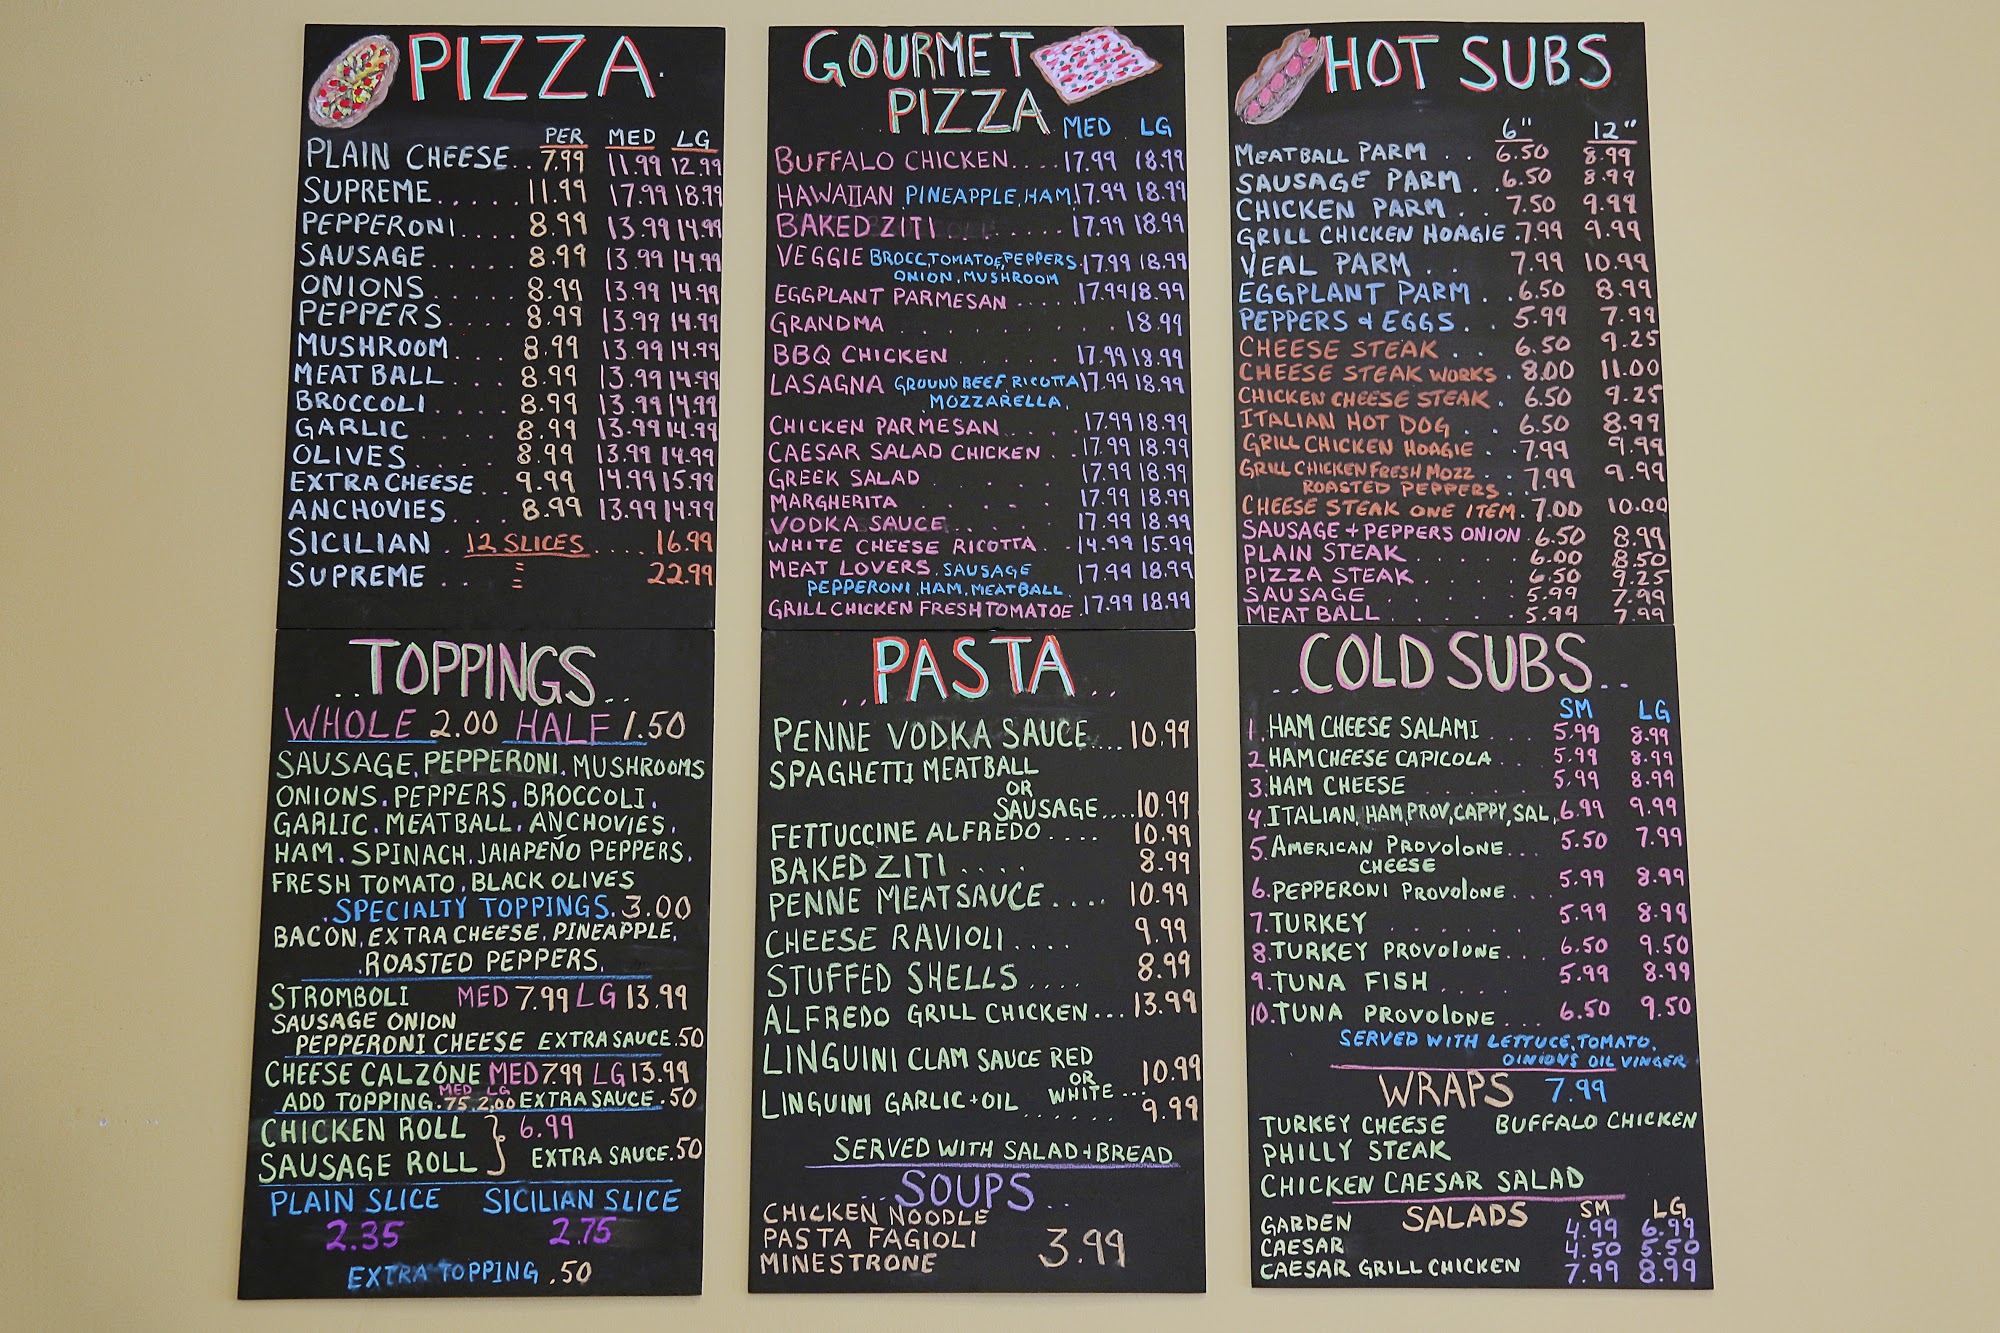 PIZZA
PER MED LG
PLAIN CHEESE.. 7.99 11.99 12.99
SUPREME..... 11.99 17.99 18.99
PEPPERONI.... 8.99 13.99 14.99
SAUSAGE..... 8.99 13.99 14.99
ONIONS...... 8.99 13.99 14.99
PEPPERS..... 8.99 13.99 14.99
MUSHROOM.... 8.99 13.99 14.99
MEAT BALL.... 8.99 13.99 14.99
BROCCOLI.... 8.99 13.99 14.99
GARLIC..... 8.99 13.99 14.99
OLIVES..... 8.99 13.99 14.99
EXTRA CHEESE.. 9.99 14.99 15.99
ANCHOVIES.... 8.99 13.99 14.99
SICILIAN . 12 SLICES .... 16.99
SUPREME .. 22.99
GOURMET
PIZZA
MED LG
BUFFALO CHICKEN.... 17.99 18.99
HAWAIIAN PINEAPPLE, HAM 17.99 18.99
BAKED ZITI ........ 17.99 18.99
VEGGIE BROCC,TOMATOE,PEPPERS. 17.99 18.99
ONION, MUSHROOM
EGGPLANT PARMESAN ..... 17.99 18.99
GRANDMA ........ 18.99
BBQ CHICKEN ..... 17.99 18.99
LASAGNA GROUND BEEF, RICOTTA 17.99 18.99
MOZZARELLA.
CHICKEN PARMESAN .... 17.99 18.99
CAESAR SALAD CHICKEN .. 17.99 18.99
GREEK SALAD ..... 17.99 18.99
MARGHERITA ..... 17.99 18.99
VODKA SAUCE ..... 17.99 18.99
WHITE CHEESE RICOTTA.. 14.99 15.99
MEAT LOVERS. SAUSAGE 17.99 18.99
PEPPERONI, HAM, MEATBALL.
GRILL CHICKEN FRESH TOMATOE. 17.99 18.99
HOT SUBS
6" 12"
MEATBALL PARM .. 6.50 8.99
SAUSAGE PARM.. 6.50 8.99
CHICKEN PARM.. 7.50 9.99
GRILL CHICKEN HOAGIE. 7.99 9.99
VEAL PARM .. 7.99 10.99
EGGPLANT PARM .. 6.50 8.99
PEPPERS & EGGS.. 5.99 7.99
CHEESE STEAK .. 6.50 9.25
CHEESE STEAK WORKS. 8.00 11.00
CHICKEN CHEESE STEAK. 6.50 9.25
ITALIAN HOT DOG .. 6.50 8.99
GRILL CHICKEN HOAGIE.. 7.99 9.99
GRILL CHICKEN FRESH MOZZ 7.99 9.99
ROASTED PEPPERS..
CHEESE STEAK ONE ITEM. 7.00 10.00
SAUSAGE + PEPPERS ONION. 6.50 8.99
PLAIN STEAK ..... 6.00 8.50
PIZZA STEAK ..... 6.50 9.25
SAUSAGE ...... 5.99 7.99
MEAT BALL ..... 5.99 7.99
TOPPINGS
WHOLE 2.00 HALF 1.50
SAUSAGE, PEPPERONI, MUSHROOMS
ONIONS, PEPPERS, BROCCOLI,
GARLIC, MEATBALL, ANCHOVIES,
HAM, SPINACH, JAlAPEÑO PEPPERS,
FRESH TOMATO, BLACK OLIVES
.SPECIALTY TOPPINGS. 3.00
BACON, EXTRA CHEESE, PINEAPPLE,
.ROASTED PEPPERS.
STROMBOLI MED 7.99 LG 13.99
SAUSAGE ONION
PEPPERONI CHEESE EXTRA SAUCE .50
CHEESE CALZONE MED 7.99 LG 13.99
MED LG
ADD TOPPING .75 2.00 EXTRA SAUCE .50
CHICKEN ROLL } 6.99
SAUSAGE ROLL EXTRA SAUCE .50
PLAIN SLICE SICILIAN SLICE
2.35 2.75
EXTRA TOPPING .50
..PASTA..
PENNE VODKA SAUCE.... 10.99
SPAGHETTI MEATBALL
OR
SAUSAGE.... 10.99
FETTUCCINE ALFREDO .... 10.99
BAKED ZITI .... 8.99
PENNE MEAT SAUCE .... 10.99
CHEESE RAVIOLI .... 9.99
STUFFED SHELLS .... 8.99
ALFREDO GRILL CHICKEN... 13.99
LINGUINI CLAM SAUCE RED
OR
WHITE ... 10.99
LINGUINI GARLIC + OIL ...... 9.99
SERVED WITH SALAD + BREAD
..SOUPS..
CHICKEN NOODLE
PASTA FAGIOLI 3.99
MINESTRONE
..COLD SUBS..
SM LG
1. HAM CHEESE SALAMI ... 5.99 8.99
2. HAM CHEESE CAPICOLA .. 5.99 8.99
3. HAM CHEESE ..... 5.99 8.99
4. ITALIAN, HAM, PROV, CAPPY, SAL, 6.99 9.99
5. AMERICAN PROVOLONE... 5.50 7.99
CHEESE
6. PEPPERONI PROVOLONE... 5.99 8.99
7. TURKEY ...... 5.99 8.99
8. TURKEY PROVOLONE... 6.50 9.50
9. TUNA FISH .... 5.99 8.99
10. TUNA PROVOLONE... 6.50 9.50
SERVED WITH LETTUCE, TOMATO,
OINIONS OIL VINGER
WRAPS 7.99
TURKEY CHEESE BUFFALO CHICKEN
PHILLY STEAK
CHICKEN CAESAR SALAD
SALADS SM LG
GARDEN 4.99 6.99
CAESAR 4.50 5.50
CAESAR GRILL CHICKEN 7.99 8.99